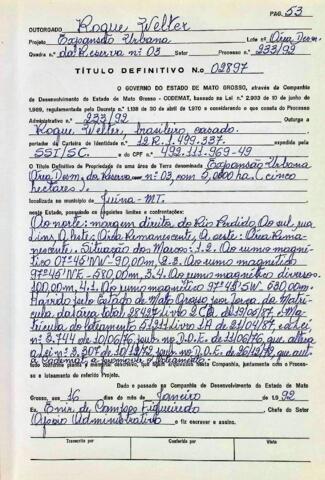 PAG. 53
OUTORGADO Roque Welter
Projeto Expansão Urbana Lote n.º Área Desm.
Quadra n.º da Reserva nº 03 Setor Processo n.º 233/92
TÍTULO DEFINITIVO N.o 02897
O GOVERNO DO ESTADO DE MATO GROSSO, através da Companhia
de Desenvolvimento do Estado de Mato Grosso - CODEMAT, baseado na Lei n.º 2.903 de 10 de junho de
1.969, regulamentada pelo Decreto n.º 1.138 de 30 de abril de 1.970 e considerando o que consta do Processo
Administrativo n.º 233/92 Outorga a
Roque Welter, brasileiro casado.
portador da Carteira de Identidade n.º 12R.1.499.337. expedida pela
SSI/SC. e do CPF n.º 492.111.369-49
O Título Definitivo de Propriedade de uma área de Terra denominado Expansão Urbana
Área Desm. da Reserva nº 03, com 5,0000 ha. (cinco
hectares).
localizada no município de Juína-MT.
neste Estado, possuindo os seguintes limites e confrontações:
Ao norte: margem direita do Rio Perdido. Ao sul: rua
Lins. A leste: Área Remanescente. A oeste: Área Rema-
nescente. Situação dos Marcos: 1.2. Ao rumo magné-
tico 07º45'NW-90,00m. 2.3. Ao rumo magnético
97º45'NE-580,00m. 3.4. Ao rumo magnético diversos.
100,00m. 4.1. Ao rumo magnético 97º45'SW 530,00m.
Havido pelo Estado de Mato Grosso por força da Matrí-
cula da área total 28427 Livro 2
Matrícula do loteamento 51.211 Livro 1A de 21/04/87, e Lei
n.º 3.744 de 10/06/76, publ. no D.O.E. de 11/06/76, que altera
a Lei nº 3.307 de 10/12/72 publ. no D.O.E. de 26/12/72, que aut.
a Codemat a promover o loteamento.
tudo conforme planta e memorial descritivo, que ficam arquivados nesta Companhia, juntamente com o Proces-
so e loteamento do referido Projeto.
Dado e passado na Companhia de Desenvolvimento do Estado de Mato
Grosso, aos 16 dias do mês de Janeiro de 1.992
Eu, Enir de Campos Figueiredo Chefe do Setor
Apoio Administrativo o fiz escrever e assino.
Transcrito por Conferido por Visto